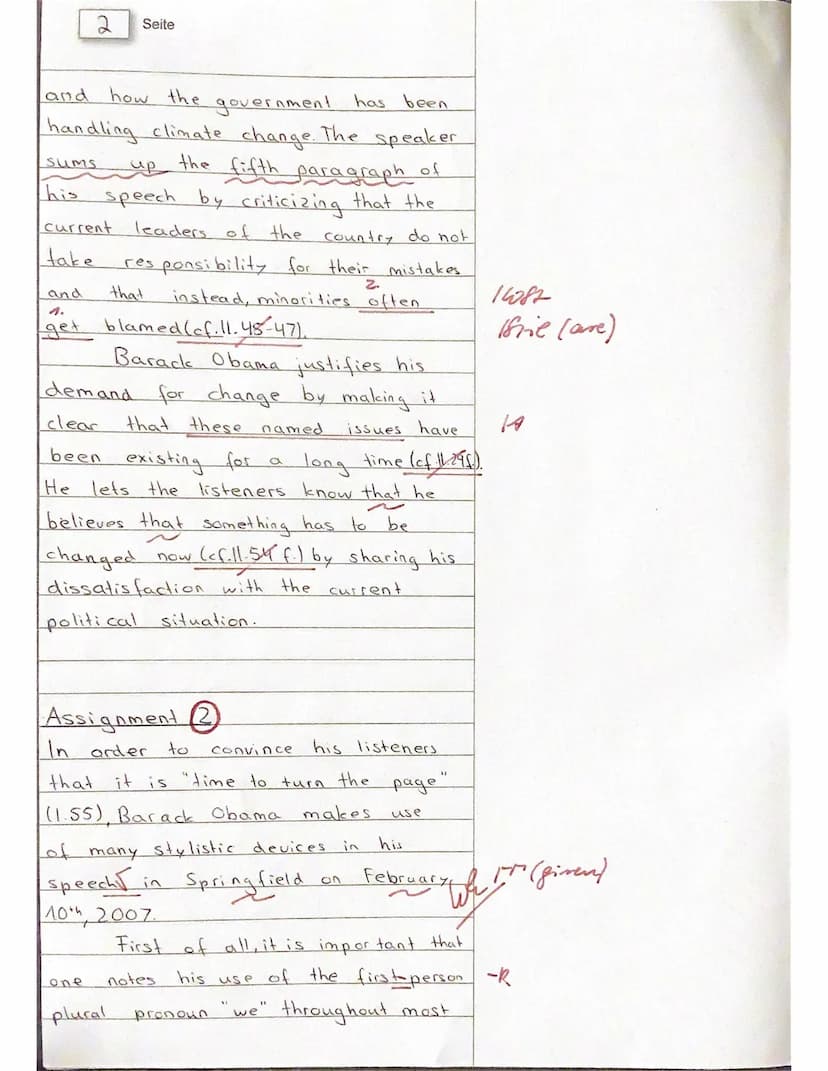 2 Seite
and how the government has been
handling climate change. The speaker
sums up the fifth paragraph of
his speech by criticizing that the
current leaders of the country do not
take responsibility for their mistakes
2.
and that instead, minorities often
1.
get blamed (cf. ll. 45-47).
(are)
Barack Obama justifies his
demand for change by making it
clear that these named issues have
been existing for a long time (cf. ll. 29f.).
He lets the listeners know that he
believes that something has to be
changed now (cf. ll. 54 f.) by sharing his
dissatisfaction with the current
political situation.
Assignment 2
In order to convince his listeners
that it is "time to turn the page"
(l. 55), Barack Obama makes use
of many stylistic devices in his
speech in Springfield on February (given)
10th, 2007.
First of all, it is important that
one notes his use of the first-person -R
plural pronoun "we" throughout most